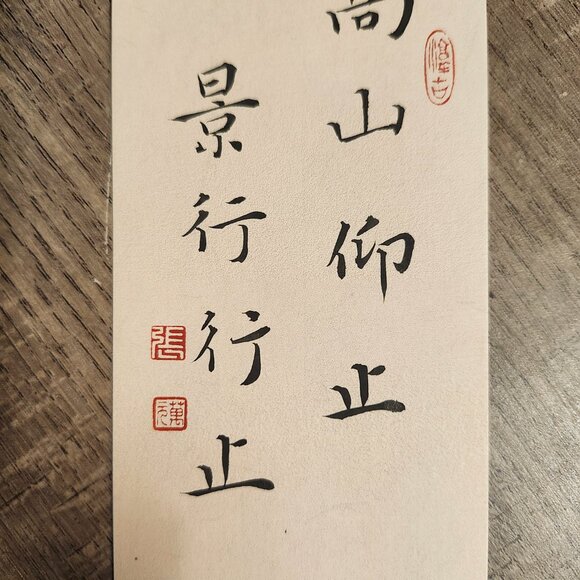 高山仰止
景行行止
張